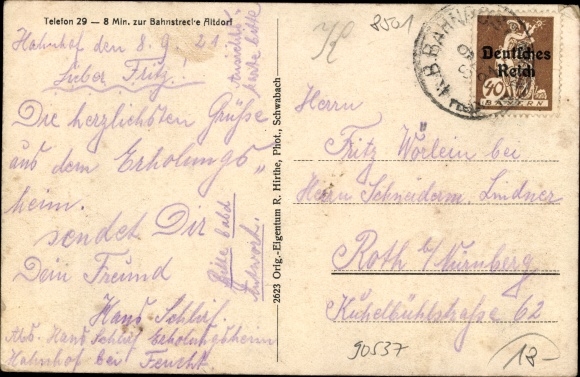 Telefon 29 — 8 Min. zur Bahnstrecke Altdorf
Hahnhof den 8. 9. 21.
Lieber Fritz!
Die herzlichsten Grüße
aus dem Erholungs„
heim.
sendet Dir
Dein Freund
Hans Schlüf.
Abs. Hans Schlüf Erholungsheim
Hahnhof bei Feucht.
Bitte bald
Antwort.
2623 Orig.-Eigentum R. Hirthe, Phot., Schwabach
8501
K.B.BAHNPOST
Deutsches
Reich
40
BAYERN
Herrn
Fritz Wörlein bei
Herrn Schneiderm. Lindner
Roth b/Nürnberg
Kühelbühlstraße 62
90537
13-